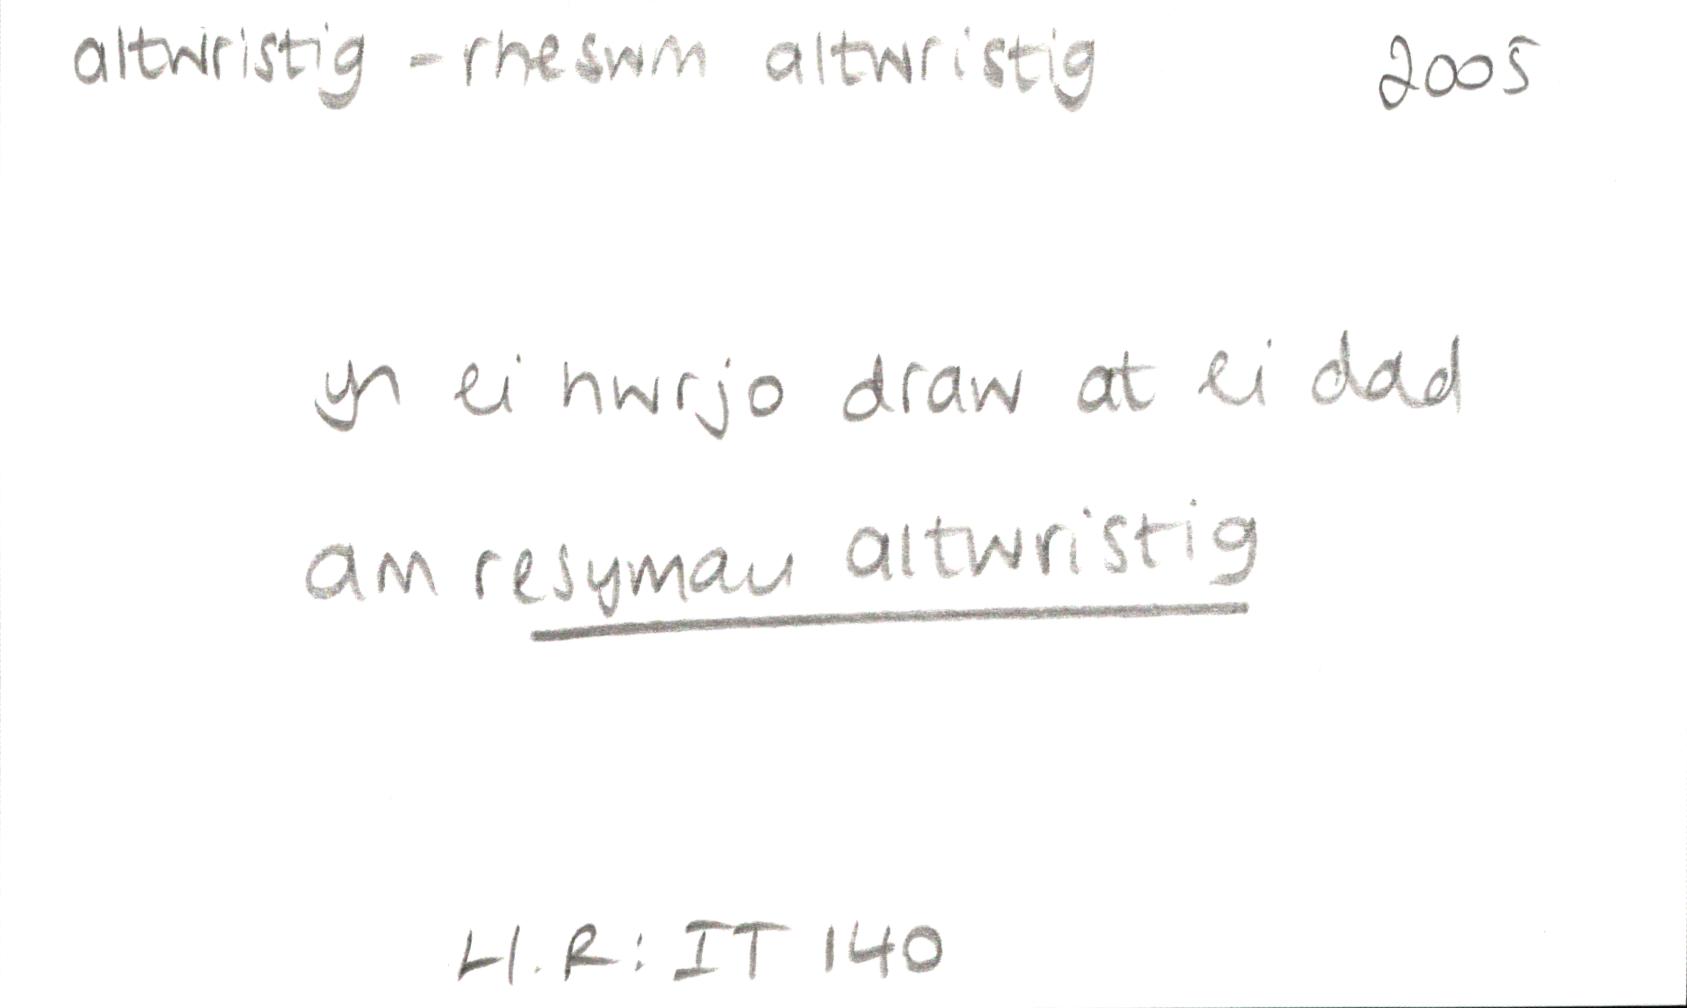 altwristig - rheswm altwristig 2005
yn ei hwrjo draw at ei dad
am resymau altwristig
Ll.R: IT 140